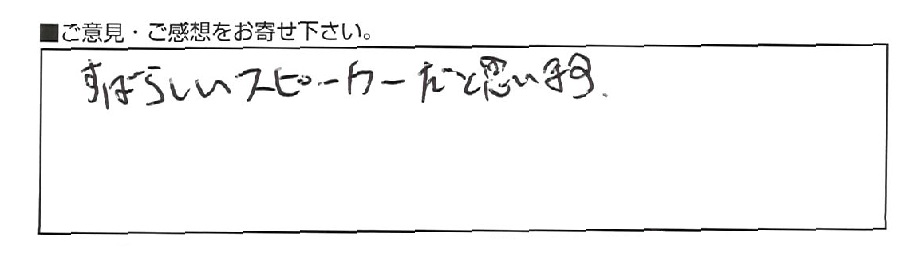 ■ご意見・ご感想をお寄せ下さい。
すばらしいスピーカーだと思います.